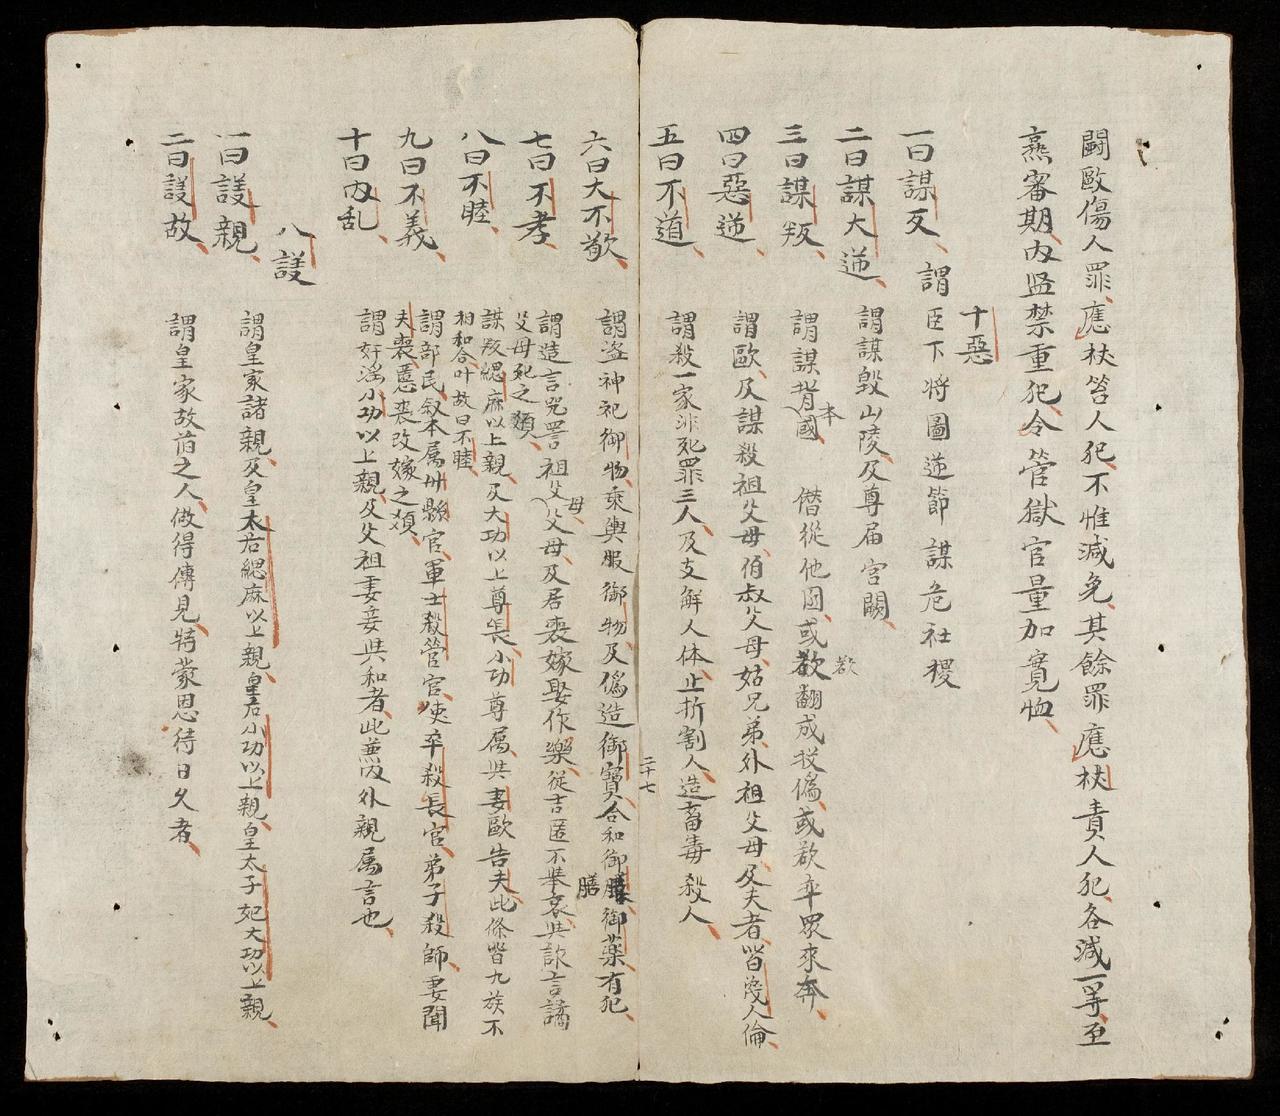 鬬毆傷人罪應杖笞人犯不惟減免其餘罪應杖責人犯各減一等至
熱審期內监禁重犯令管獄官量加寬恤
十惡
一曰謀反 謂臣下將圖逆節謀危社稷
二曰謀大逆 謂謀毀山陵及尊届宫闕
三曰謀叛 謂謀背本國僭從他國或欲翻成投偽或欲卒眾來奔
欲
四曰惡逆 謂歐及謀殺祖父母伯叔父母姑兄弟外祖父母及夫者皆蔑人倫
五曰不道 謂殺一家非死罪三人及支解人体止折割人造畜毒殺人
二十七
六曰大不敬 謂盜神祀御物乘輿服御物及偽造御寶合和御膳御藥有犯
七曰不孝 謂造言咒詈祖父母父母及居喪嫁娶作樂從吉匿不舉哀共訴言譎
父母死之類
八曰不睦 謀殺緦麻以上親及大功以上尊長小功尊属共妻歐告夫此條皆九族不
相和合叶故曰不睦
九曰不義 謂部民叙本属州縣官軍士殺管官使卒殺長官弟子殺師妻聞
夫喪悪丧改嫁之類
十曰內乱 謂奸淫小功以上親及父祖妻妾共和者此兼內外親属言也
八議
一曰議親 謂皇家諸親及皇太后緦麻以上親皇后小功以上親皇太子妃大功以上親
二曰議故 謂皇家故旧之人做得傳見特蒙恩待日久者